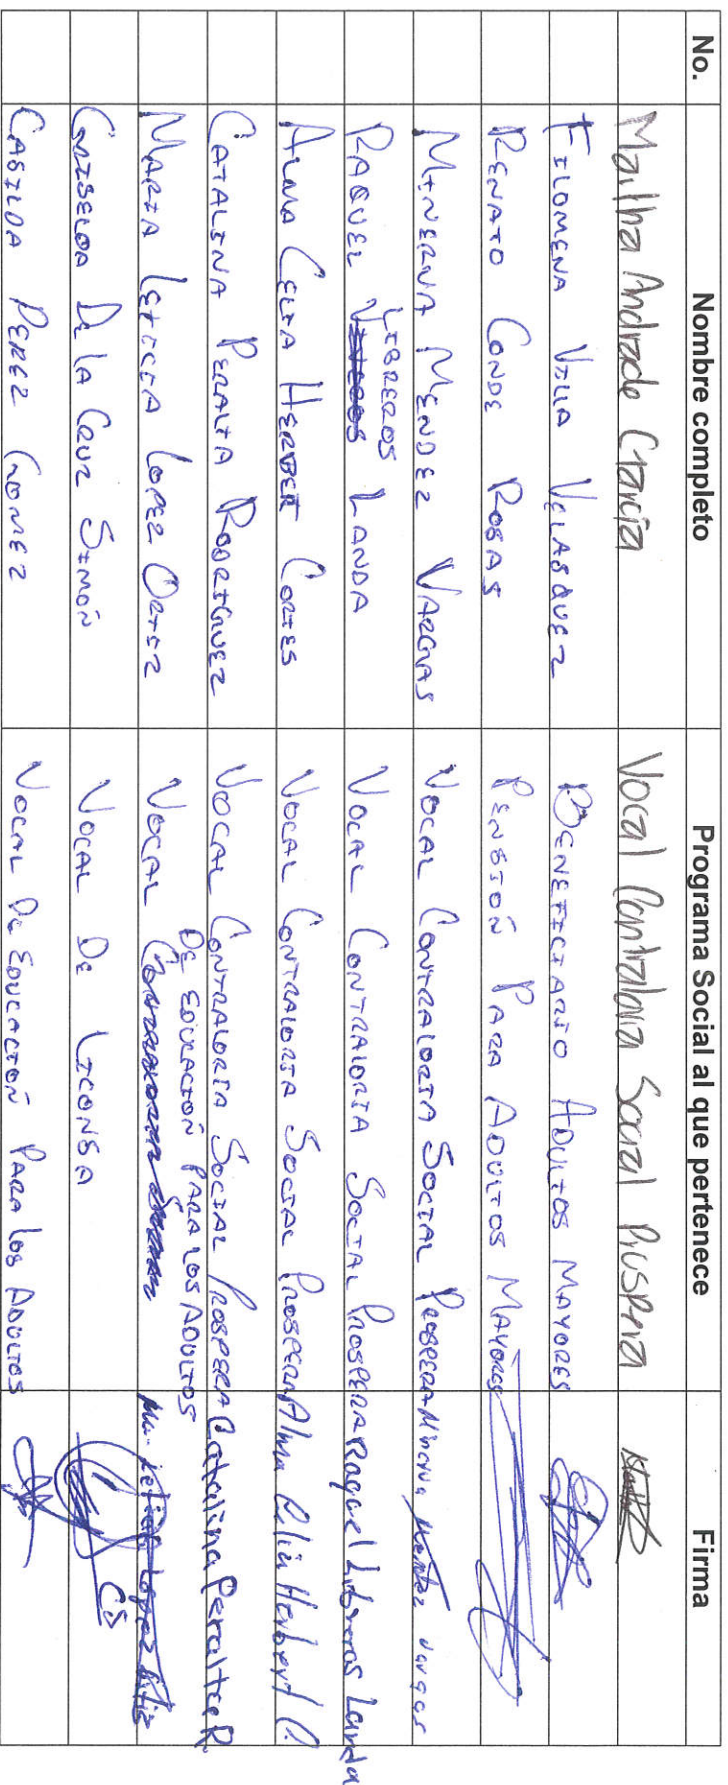 No. Nombre completo Programa Social al que pertenece Firma
Mailha Andrade Garcia Vocal Contraloria Social Prospera
FILOMENA VILLA VELASQUEZ BENEFICIARIO ADULTOS MAYORES
RENATO CONDE ROSAS PENSIÓN PARA ADULTOS MAYORES
MINERVA MENDEZ VARGAS VOCAL CONTRALORIA SOCIAL PROSPERA Minerva Mendez Vargas
LIBREROS
RAQUEL LANDA VOCAL CONTRALORIA SOCIAL PROSPERA Raquel Libreros Landa
ALMA CELIA HERBERT CORTES VOCAL CONTRALORIA SOCIAL PROSPERA Alma Celia Herbert C.
CATALINA PERALTA RODRIGUEZ VOCAL CONTRALORIA SOCIAL PROSPERA Catalina Peralta R.
DE EDUCACIÓN PARA LOS ADULTOS
MARIA LETICIA LOPEZ ORTIZ VOCAL Ma. Leticia Lopez Ortiz
GRISELDA DE LA CRUZ SIMÓN VOCAL DE LICONSA
CASILDA PEREZ GOMEZ VOCAL DE EDUCACIÓN PARA LOS ADULTOS